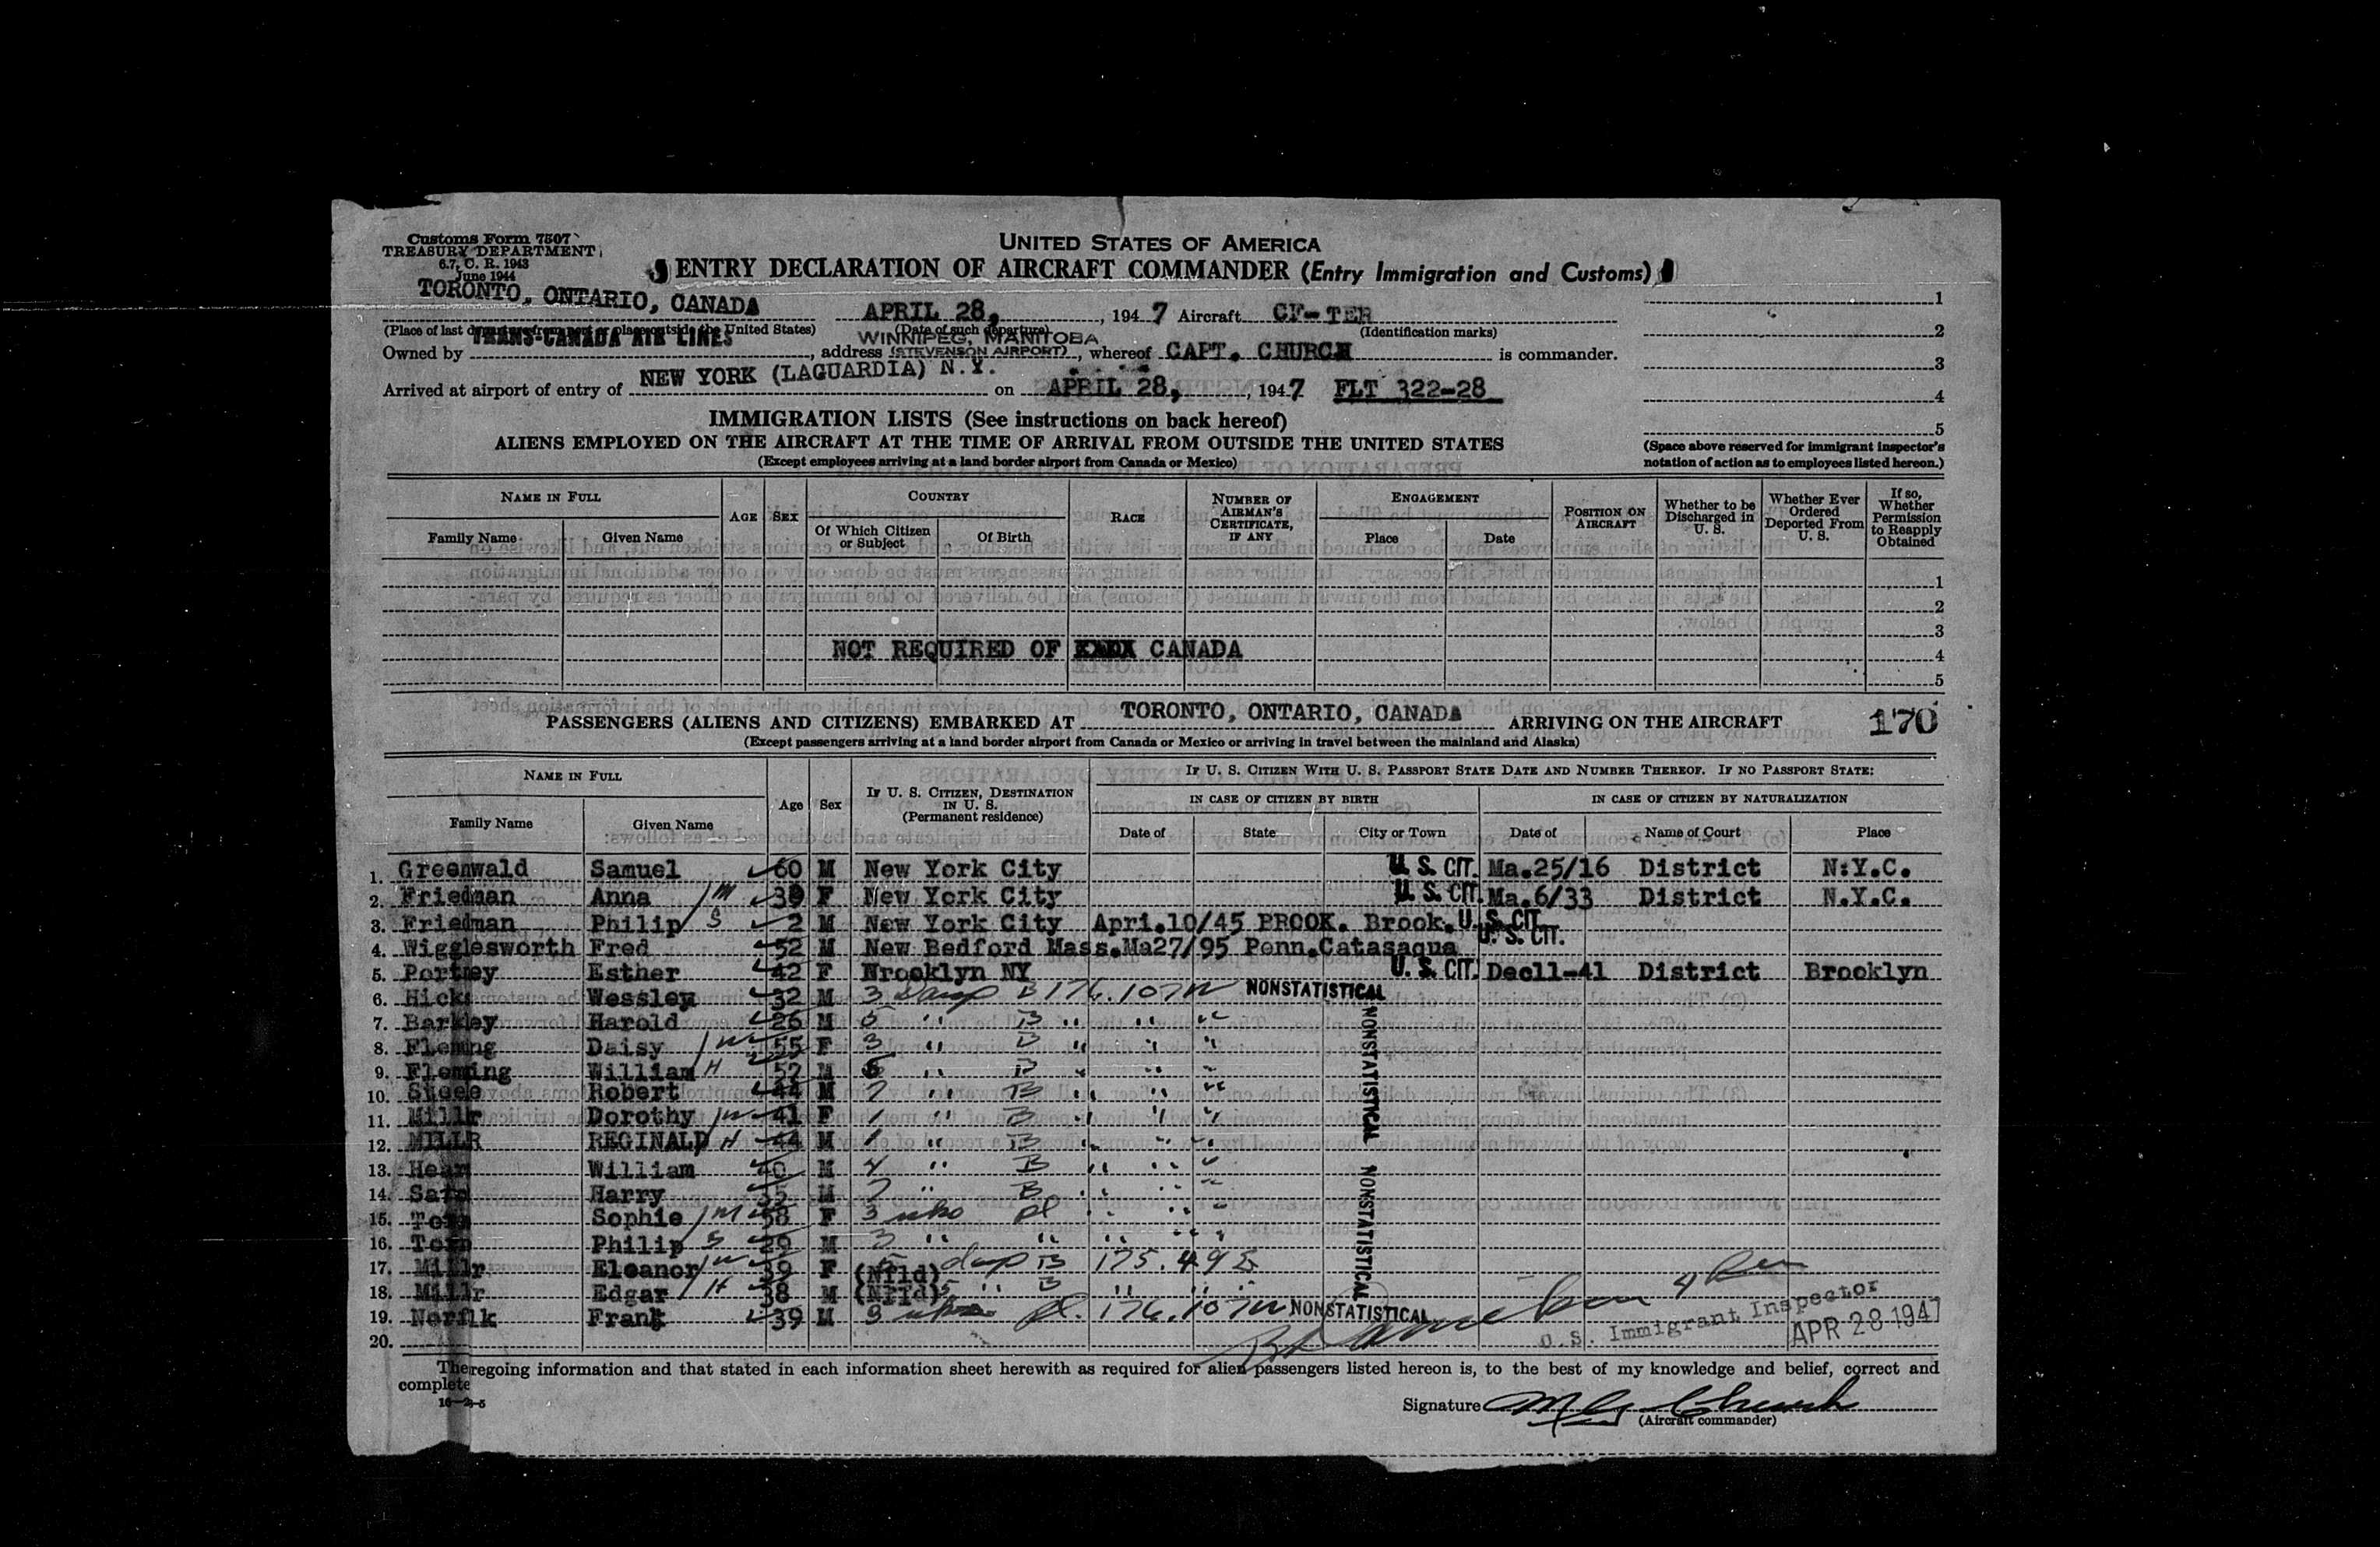 Customs Form 7507
TREASURY DEPARTMENT
6.7, C. R. 1943
June 1944
UNITED STATES OF AMERICA
ENTRY DECLARATION OF AIRCRAFT COMMANDER (Entry Immigration and Customs)
TORONTO, ONTARIO, CANADA APRIL 28, 1947 Aircraft CF-TER
(Place of last departure from port or place outside the United States) (Date of such departure) (Identification marks)
Owned by TRANS-CANADA AIR LINES, address WINNIPEG, MANITOBA (STEVENSON AIRPORT), whereof CAPT. CHURCH is commander.
Arrived at airport of entry of NEW YORK (LAGUARDIA) N.Y. on APRIL 28, 1947 FLT 322-28
1
2
3
4
5
(Space above reserved for immigrant inspector's notation of action as to employees listed hereon.)
IMMIGRATION LISTS (See instructions on back hereof)
ALIENS EMPLOYED ON THE AIRCRAFT AT THE TIME OF ARRIVAL FROM OUTSIDE THE UNITED STATES
(Except employees arriving at a land border airport from Canada or Mexico)
NAME IN FULL
Family Name Given Name
AGE SEX
COUNTRY
Of Which Citizen or Subject Of Birth
RACE
NUMBER OF AIRMAN'S CERTIFICATE, IF ANY
ENGAGEMENT
Place Date
POSITION ON AIRCRAFT
Whether to be Discharged in U. S.
Whether Ever Ordered Deported From U. S.
If so, Whether Permission to Reapply Obtained
1
2
3
NOT REQUIRED OF CANADA 4
5
PASSENGERS (ALIENS AND CITIZENS) EMBARKED AT TORONTO, ONTARIO, CANADA ARRIVING ON THE AIRCRAFT 170
(Except passengers arriving at a land border airport from Canada or Mexico or arriving in travel between the mainland and Alaska)
NAME IN FULL
Family Name Given Name
Age Sex
IF U. S. CITIZEN, DESTINATION IN U. S. (Permanent residence)
IF U. S. CITIZEN WITH U. S. PASSPORT STATE DATE AND NUMBER THEREOF. IF NO PASSPORT STATE:
IN CASE OF CITIZEN BY BIRTH
IN CASE OF CITIZEN BY NATURALIZATION
Date of State City or Town Date of Name of Court Place
1. Greenwald Samuel 60 M New York City U. S. CIT. Ma.25/16 District N.Y.C.
2. Friedman Anna M 39 F New York City U. S. CIT. Ma.6/33 District N.Y.C.
3. Friedman Philip S 2 M New York City Apri.10/45 BROOK. Brook. U. S. CIT.
4. Wigglesworth Fred 52 M New Bedford Mass. Ma27/95 Penn. Catasaqua U. S. CIT.
5. Portney Esther 42 F Brooklyn NY U. S. CIT. Dec11-41 District Brooklyn
6. Hick Wessley 32 M 3 B 176.107 NONSTATISTICAL
7. Barkley Harold 26 M 5 " B " " "
8. Fleming Daisy 55 F 3 " B " " "
9. Fleming William H 57 M " B " " "
10. Robert 44 M 7 " B " " "
11. Millr Dorothy 41 F 1 " B " " "
12. MILLR REGINALD H 44 M 1 " B " " "
13. William 40 M 4 " B " " "
14. Harry 35 M 7 " B " " "
15. Sophie M 58 F 3 " " "
16. Philip S 29 M 3 " " " " "
17. Millr Eleanor 39 F (Nfld) B 175.49
18. Millr Edgar H 38 M (Nfld) 5 " B " " "
19. Norflk Frank 39 M 3 176.107 NONSTATISTICAL
20.
NONSTATISTICAL
NONSTATISTICAL
U. S. Immigrant Inspector
APR 28 1947
The regoing information and that stated in each information sheet herewith as required for alien passengers listed hereon is, to the best of my knowledge and belief, correct and
complete
Signature Church
(Aircraft commander)